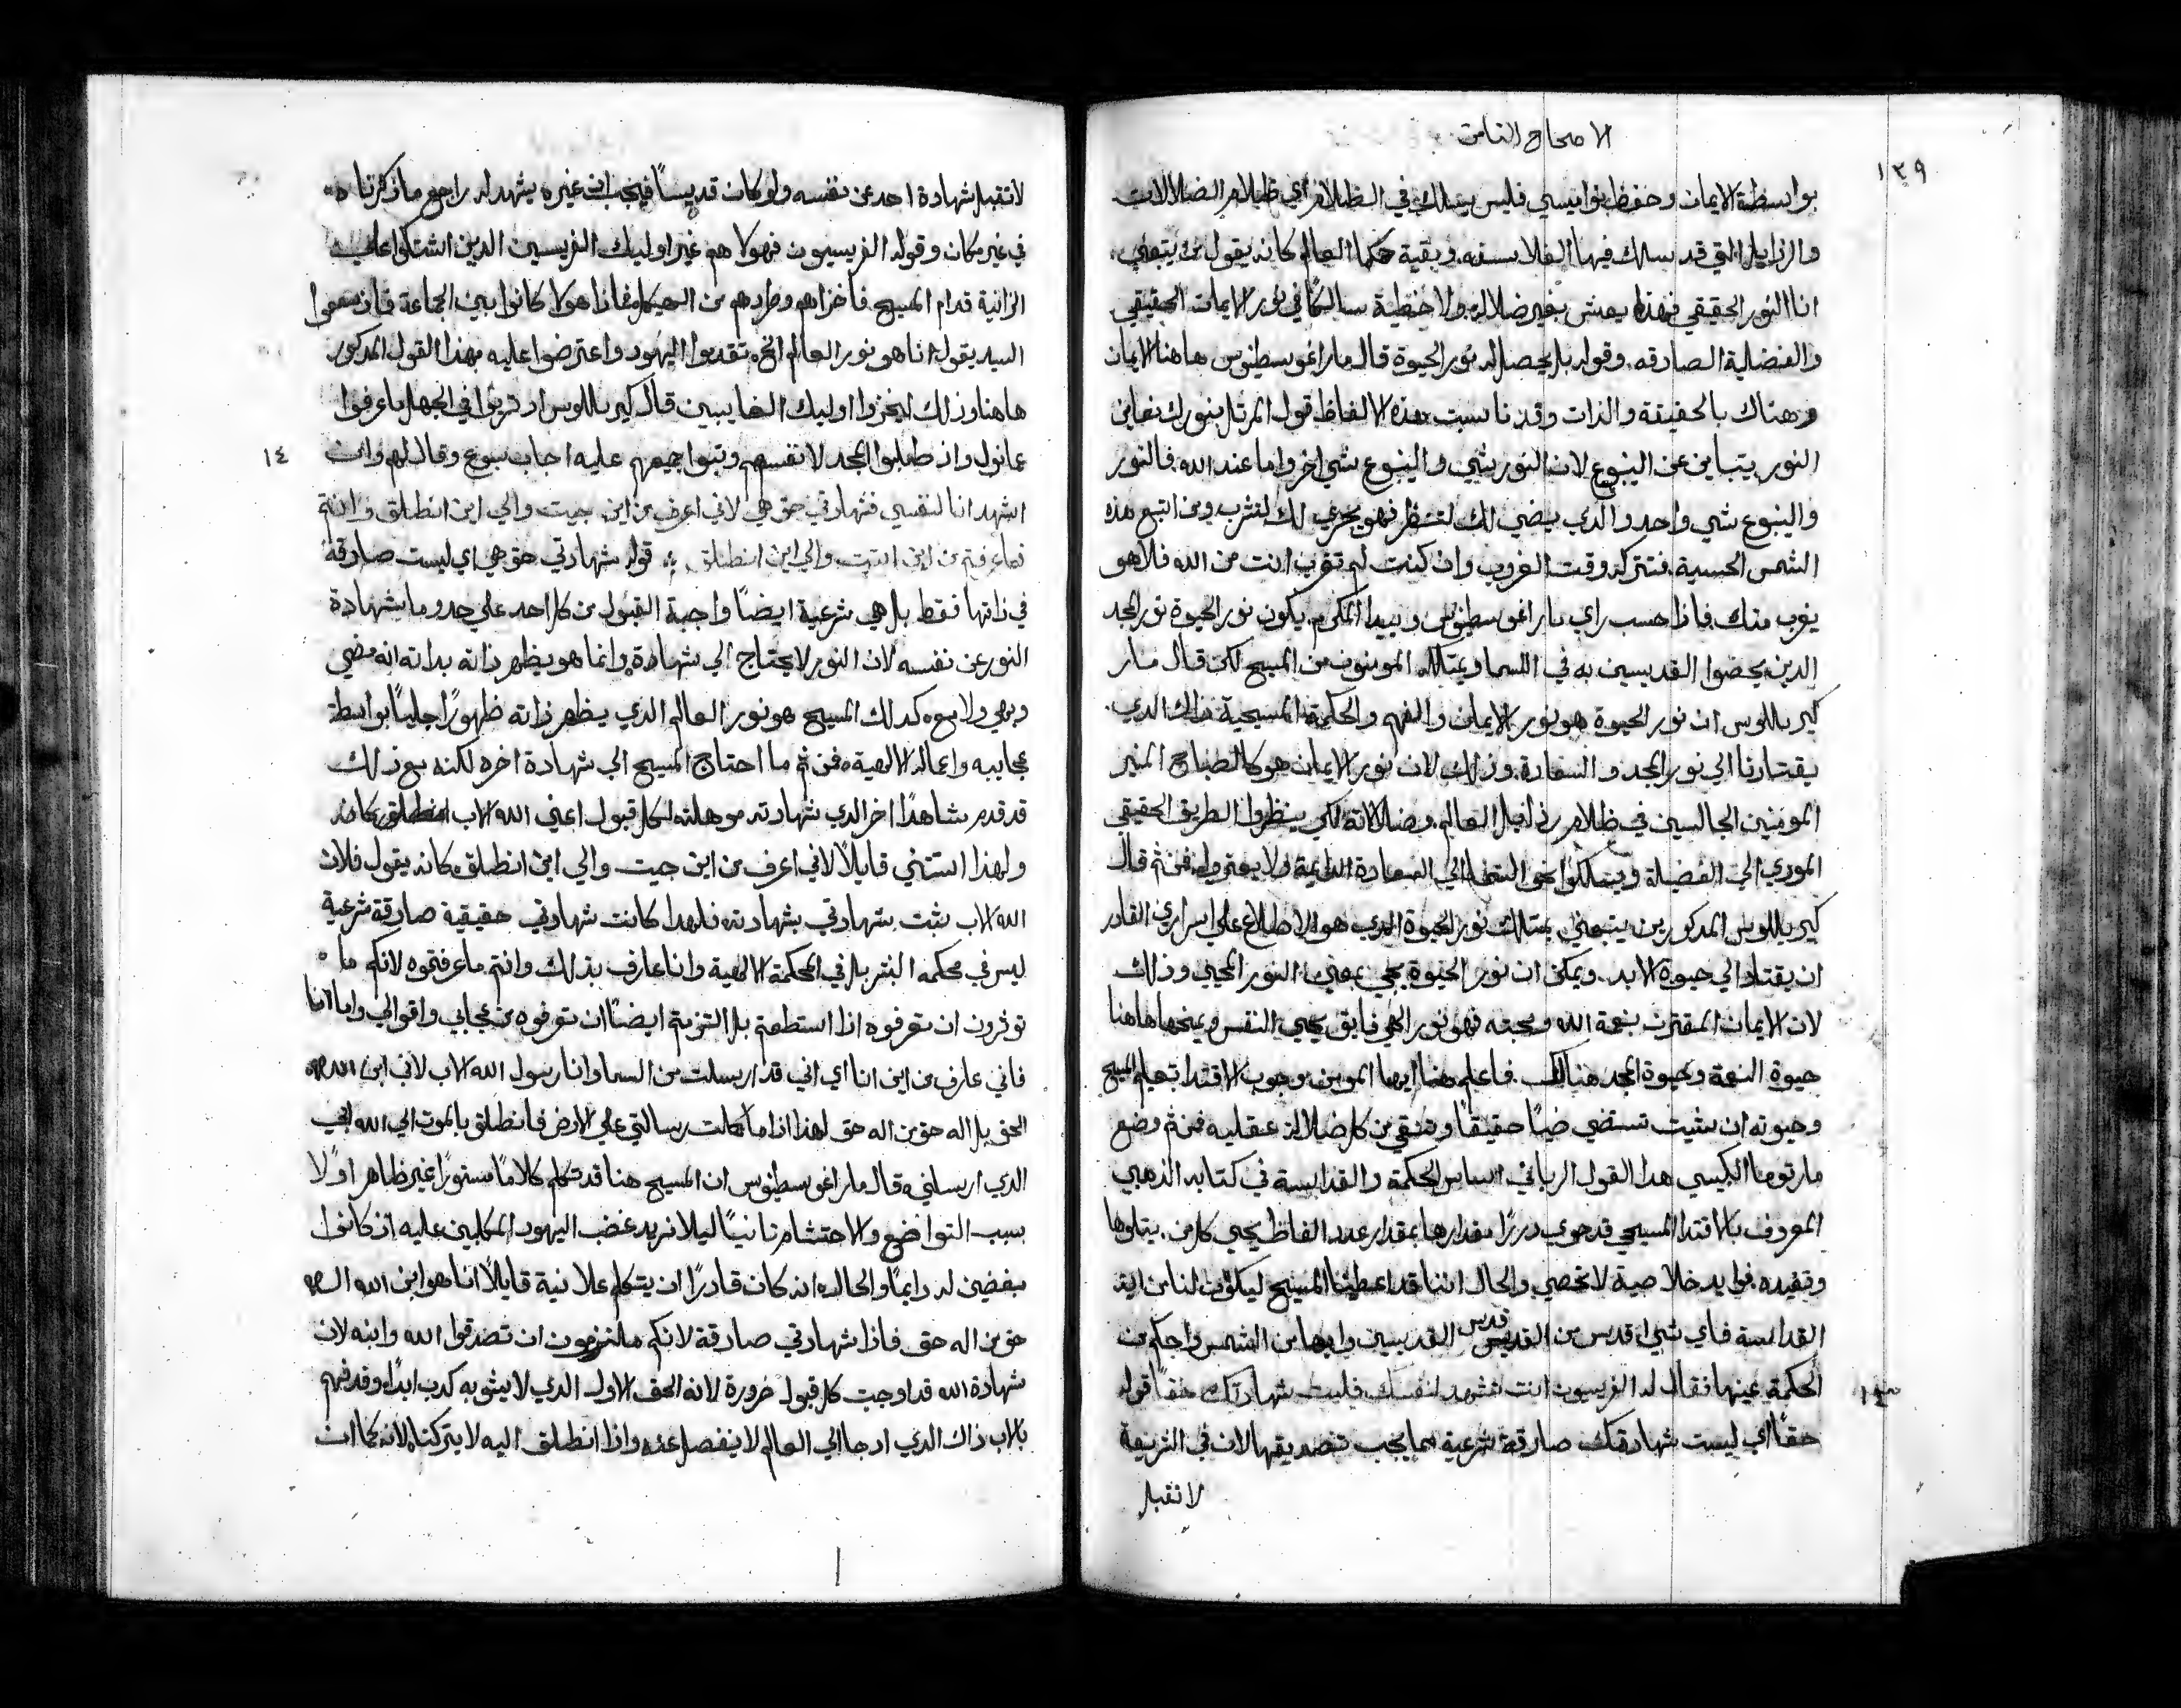 الاصحاح الثامن
١٣٩
بواسطة الايمان وحفظ نواميسي فليس يسلك في الظلام اي ظلام الضلالات
والرذايل التي قد يسلك فيها الفلاسفه وبقية حكما العالم كانه يقول من يتبعني
انا النور الحقيقي فهذا يعش بغير ضلاله ولا خطية سالكًا في نور الايمان الحقيقي
والفضلية الصادقه. وقوله بل يحصل له نور الحيوة قال مار اغوسطينوس هاهنا الايمان
وهناك بالحقيقة والذات وقد ناسبت هذه الالفاظ قول المرتل بنورك نعاين
النور يتباين عن الينبوع لان النور شي والينبوع شي اخر واما عند الله فالنور
والينبوع شي واحد والذي يضي لك لتنظر فهو يجري لك لتشرب ومن اتبع هذه
الشمس الحسية فتتركه وقت الغروب وان كنت لم تغرب انت من الله فلا هو
يغرب منك فاذا حسب راي مار اغوسطينوس وبيدا المكرم يكون نور الحيوة نور المجد
الدين يحضوا القديسين به في السما ويمتلكه المومنون من المسيح لكن قال مار
كيرىللوس ان نور الحيوة هو نور الايمان والفهم والحكمة المسيحية ذلك الدي
يقتادنا الي نور المجد والسعادة وذلك لان نور الايمان هو كالمصباح المنير
المومنين الجالسين في ظلام رذايل العالم وضلالاته لكي ينظروا الطريق الحقيقي
المودي الي الفضيلة ويسلكوا نحو السما الي السعادة الدايمة ولا يعثروا فمن ثم قال
كيرىللوس المدكور من يتبعني يمتلك نور الحيوة الدي هو الاطلاع علي اسراري القادر
ان يقتاد الي حيوة الابد. ويمكن ان نور الحيوة يجي بمعني النور المحيي وذلك
لان الايمان المقترن بنعمة الله ومحبته فهو نور الهي فايق يحيي النفس ويمنحها هاهنا
حيوة النعمة وحيوة المجد هنالك. فاعلم هنا ايها المومن وجوب الاقتدا بتعليم المسيح
وحيوته ان شيت تستضي ضيًا حقيقًا وتنقي من كل ضلالة عقليه فمن ثم وضع
مار توما الكبيسي هدا القول الرباني اساس الحكمة والقداسة في كتابه الذهبي
المعروف بالاقتدا المسيحي قد حوي دررًا مقدارها بمقدار عدد الفاظ يحيي كل من يتلوها
وتفيده فوايد خلاصية لا تحصي والحال اننا قد اعطينا المسيح ليكون لنا من ايه
القداسة فاي شي اقدس من القديس قدس القديسين وابها من الشمس واحكم من
١٣
الحكمة عينها فقال له الفريسيون انت تشهد لنفسك فليست شهادتك حقًا قوله
حقًا اي ليست شهادتك صادقة شرعية مما يجب تصديقها لان في الشريعة
لا تقبل
لا تقبل شهادة احد عن نفسه ولو كان قديسًا فيجب ان غيره يشهد له راجع ما ذكرناه
في غير مكان وقوله الفريسيون فهولا هم غير اوليك الفريسين الدين اشتكوا علي
الزانية قدام المسيح فاخزاهم وطردهم من الهيكل فاذا هولا كانوا بين الجماعة فاذ سمعوا
السيد يقول انا هو نور العالم الخ تقدموا اليهود واعترضوا عليه بهذا القول المدكور
هاهنا وذلك ليعزوا اوليك الغايبين قال كيرىللوس اذ تربوا في الجهل ما عرفوا
١٤
عمانويل واذ طلبوا المجد لانفسهم وثبوا جميعهم عليه اجاب يسوع وقال لهم وان
اشهد انا لنفسي فشهادتي حق هي لاني اعرف من اين جيت والي اين انطلق وانتم
فما عرفتم من اين اتيت والي اين انطلق ؞ قوله شهادتي حق هي اي ليست صادقة
في ذاتها فقط بل هي شرعية ايضًا واجبة القبول من كل احد علي حدو ما شهادة
النور عن نفسه لان النور لا يحتاج الي شهادة وانما هو يظهر ذاته بداته انه مضي
وبهي ولامع كدلك المسيح هو نور العالم الدي يظهر ذاته ظهورًا جليًا بواسطة
عجايبه واعماله الالهية فمن ثم ما احتاج المسيح الي شهادة اخره لكنه مع ذلك
قد قدم شاهدًا اخر الدي شهادته موهلة لكل قبول اعني الله الاب
ولهذا استثني قايلًا لاني اعرف من اين جيت والي اين انطلق كانه يقول فلان
الله الاب يثبت شهادتي بشهادته فلهدا كانت شهادتي حقيقية صادقة شرعية
ليس في محكمه البشر بل في المحكمة الالهية وانا عارف بذلك وانتم ما عرفتموه لانكم ما
توثرون ان تعرفوه اذا استطعتم بل التزمتم ايضًا ان تعرفوه من عجايبي واقوالي واما انا
فاني عارف من اين انا اي اني قد ارسلت من السما وانا رسول الله الاب لاني ابن الله
الحق بل اله حق من اله حق لهذا اذا ما كملت رسالتي علي الارض فانطلق بالموت الي الله ابي
الدي ارسلني قال مار اغوسطينوس ان المسيح هنا قد تكلم كلامًا مستورًا غير ظاهر اولًا
بسبب التواضع والاحتشام ثانيًا ليلا يزيد غضب اليهود المكلبين عليه اذ كانوا
مبغضين له دايمًا والحال انه كان قادرًا ان يتكلم علانية قايلًا انا هو ابن الله اله
حق من اله حق فاذا شهادتي صادقة لانكم ملتزمون ان تصدقوا الله وابنه لان
شهادة الله قد اوجبت كل قبول ضرورة لانه الحق الاول الدي لا يشوبه كدب ابدًا وقد فهم
بالاب ذاك الدي اد جا الي العالم لا ينفصل عنه واذا انطلق اليه لا يتركنا لانه كما ان